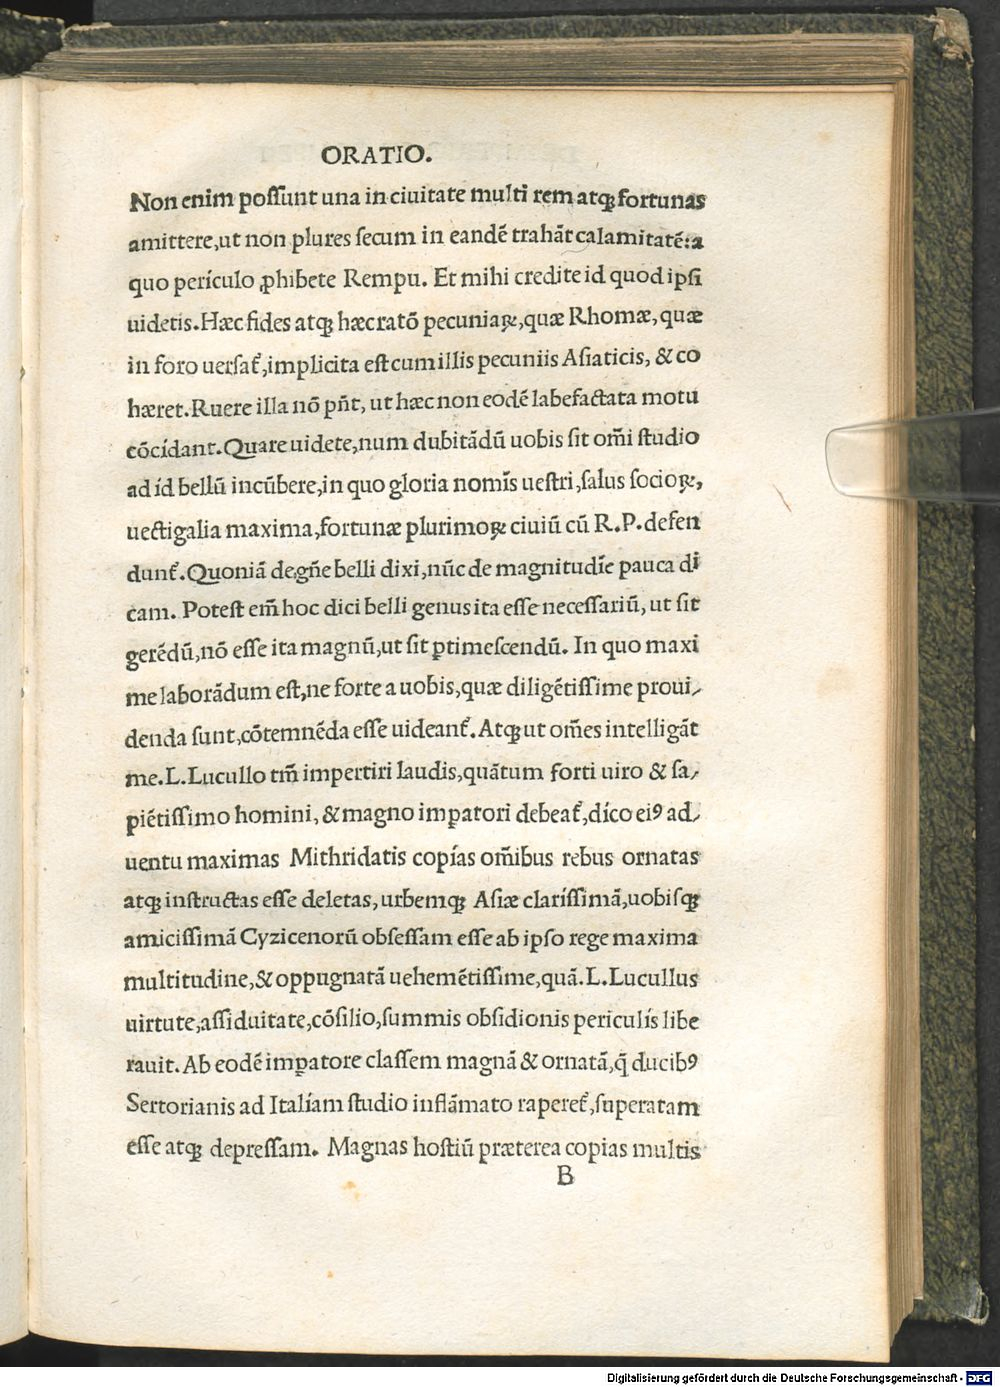 ORATIO.
Non enim poſſunt una in ciuitate multi rem atqꝫ fortunas
amittere,ut non plures ſecum in eandē trahāt calamitatē:a
quo perículo ꝓhibete Rempu. Et mihi credite id quod ipſi
uidetis.Hæc fides atqꝫ hæc ratō pecuniaꝝ,quæ Rhomæ,quæ
in foro uerſat᷑,implicita eſt cum illis pecuniis Aſiaticis, & co
hæret.Ruere illa nō pñt, ut hæc non eodē labefactata motu
cōcídant.Quare uidete,num dubitādū uobis ſit om̄i ſtudio
ad íd bellū incūbere,in quo gloria nomı̄s ueſtri,ſalus socioꝝ,
uectigalia maxima,fortunæ plurimoꝝ ciuiū cū R.P.defen
dunt᷑.Quoniā de gn̄e belli dixi,nūc de magnitudı̄e pauca di
cam. Poteſt em̄ hoc dici belli genus ita eſſe neceſſariū, ut ſit
gerēdū,nō eſſe ita magnū,ut ſit ꝑtimeſcendū. In quo maxi
me laborādum eſt,ne forte a uobis,quæ diligētiſſime proui⸗
denda ſunt,cōtemnēda eſſe uideant᷑.Atqꝫ ut om̄es intelligāt
me.L.Lucullo tm̄ impertiri laudis,quātum forti uiro & ſa⸗
piētiſſimo homini, & magno imꝑatori debeat᷑,díco eiꝰ ad⸗
uentu maximas Mithridatis copías om̄ibus rebus ornatas
atqꝫ inſtructas eſſe deletas, urbemqꝫ Aſiæ claríſſimā,uobiſqꝫ
amiciſſimā Cyzicenorū obſeſſam eſſe ab ipſo rege maxima
multitudine,& oppugnatā uehemētiſſime,quā.L.Lucullus
uirtute,aſſiduitate,cōſilio,ſummis obſidionis periculís libe
rauit. Ab eodē imꝑatore claſſem magnā & ornatā,q̄ ducibꝰ
Sertorianis ad Italíam ſtudio inflāmato raperet᷑,ſuperatam
eſſe atqꝫ depreſſam. Magnas hoſtiū præterea copias multis
B
Digitalisierung gefördert durch die Deutsche Forschungsgemeinschaft - DFG